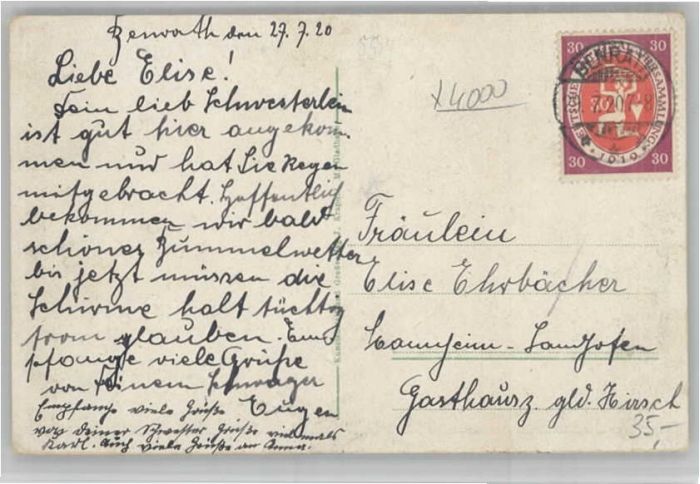 Benrath den 27.7.20
Liebe Elise!
Dein lieb Schwesterlein
ist gut hier angekom-
men und hat Sie Regen
mitgebracht. Hoffentlich
bekommen wir bald
schönes Bummelwetter
bis jetzt müssen die
Schirme halt tüchtig
dran glauben. Em-
pfange viele Grüße
von Deinem Schwager
Eugen
Empfange viele Grüße
von deiner Schwester Grüße vielmals
Karl. Auch viele Grüße an Anna.
x4000
30 30
BENRATH
7.20 7-8
1919
30 30
Fräulein
Elise Ehrbächer
Mannheim-Sandhofen
Gasthausz. gld. Hirsch
35,-